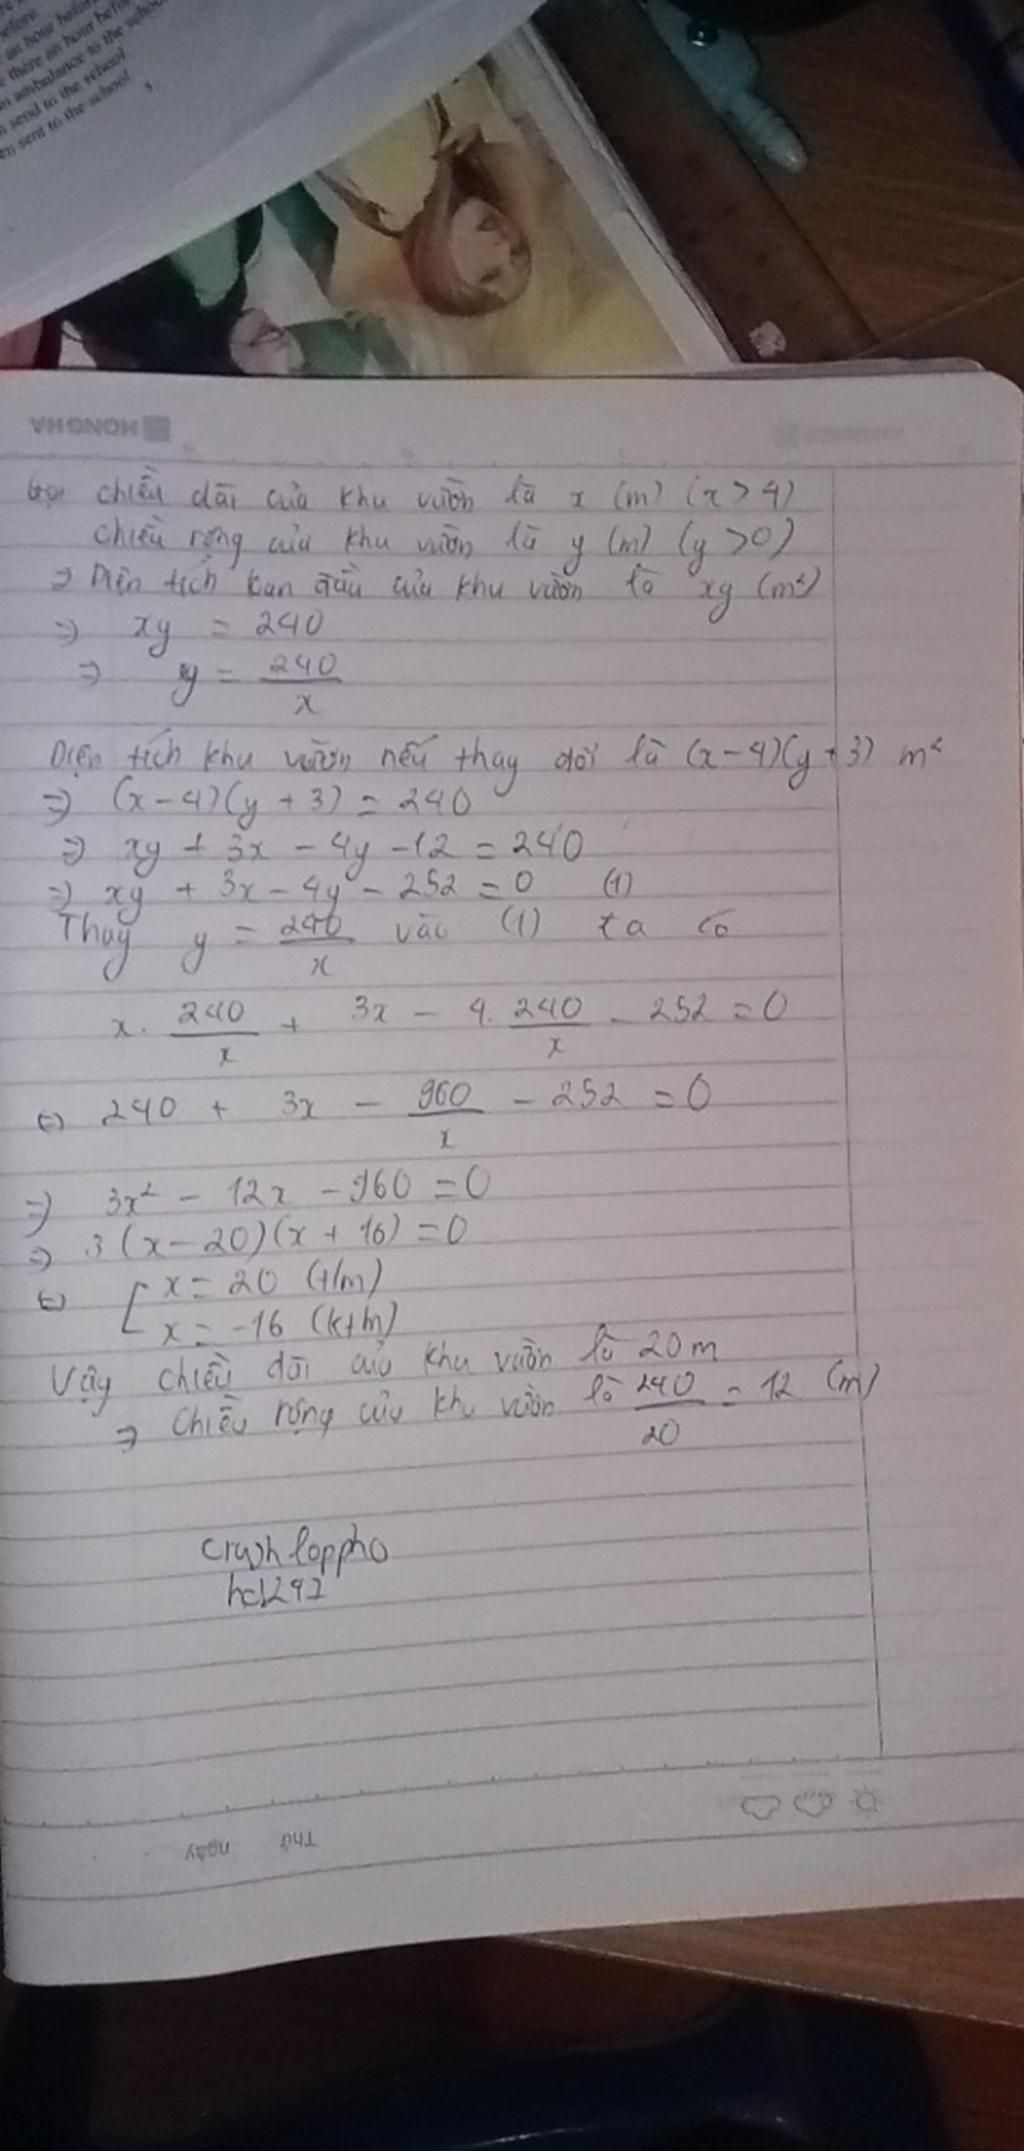 efore.
an hour before
there an hour before
an ambulance to the school
send to the school
en sent to the school
HONG HA
Gọi chiều dài của khu vườn là x (m) (x > 4)
chiều rộng của khu vườn là y (m) (y > 0)
⇒ Diện tích ban đầu của khu vườn là xy (m²)
⇒ xy = 240
⇒ y = 240/x
Diện tích khu vườn nếu thay đổi là (x-4)(y+3) m²
⇒ (x-4)(y+3) = 240
⇒ xy + 3x - 4y - 12 = 240
⇒ xy + 3x - 4y - 252 = 0 (1)
Thay y = 240/x vào (1) ta có
x. 240/x + 3x - 4. 240/x - 252 = 0
⇔ 240 + 3x - 960/x - 252 = 0
⇒ 3x² - 12x - 960 = 0
⇒ 3(x-20)(x+16) = 0
⇔ [ x = 20 (t/m)
x = -16 (ktm)
Vậy chiều dài của khu vườn là 20m
⇒ Chiều rộng của khu vườn là 240/20 = 12 (m)
crush loppho
hd1292
Thứ ngày